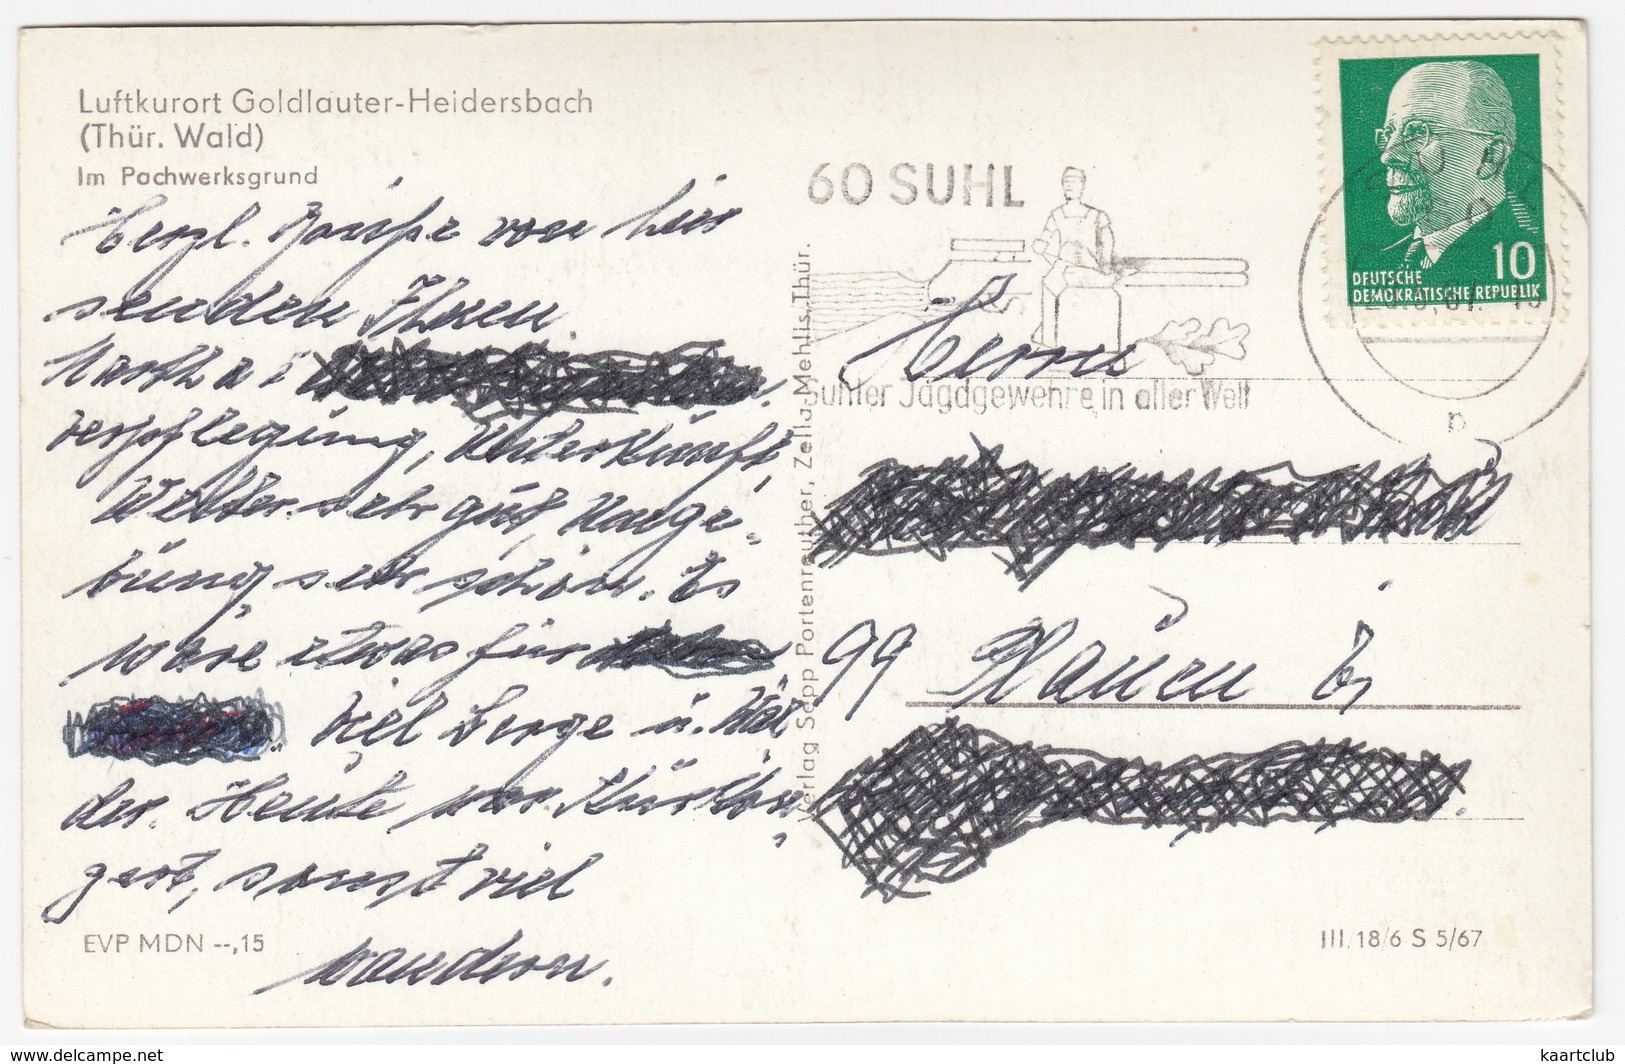 Luftkurort Goldlauter-Heidersbach
(Thür. Wald)
Im Pochwerksgrund
Herzl. Grüße von hier
senden Ihnen
Martha
Verpflegung, Unterkunft,
Wetter sehr gut, Umge-
bung sehr schön. Es
wäre etwas für
Viel Berge u. Wäl-
der. Heute nur
sonst viel
wandern.
EVP MDN --,15
Verlag Sepp Portenreuther, Zella-Mehlis, Thür.
60 SUHL
Suhler Jagdgewehre in aller Welt
10
DEUTSCHE
DEMOKRATISCHE REPUBLIK
Herrn
99 Plauen
III. 18/6 S 5/67
www.delcampe.net
kaartclub